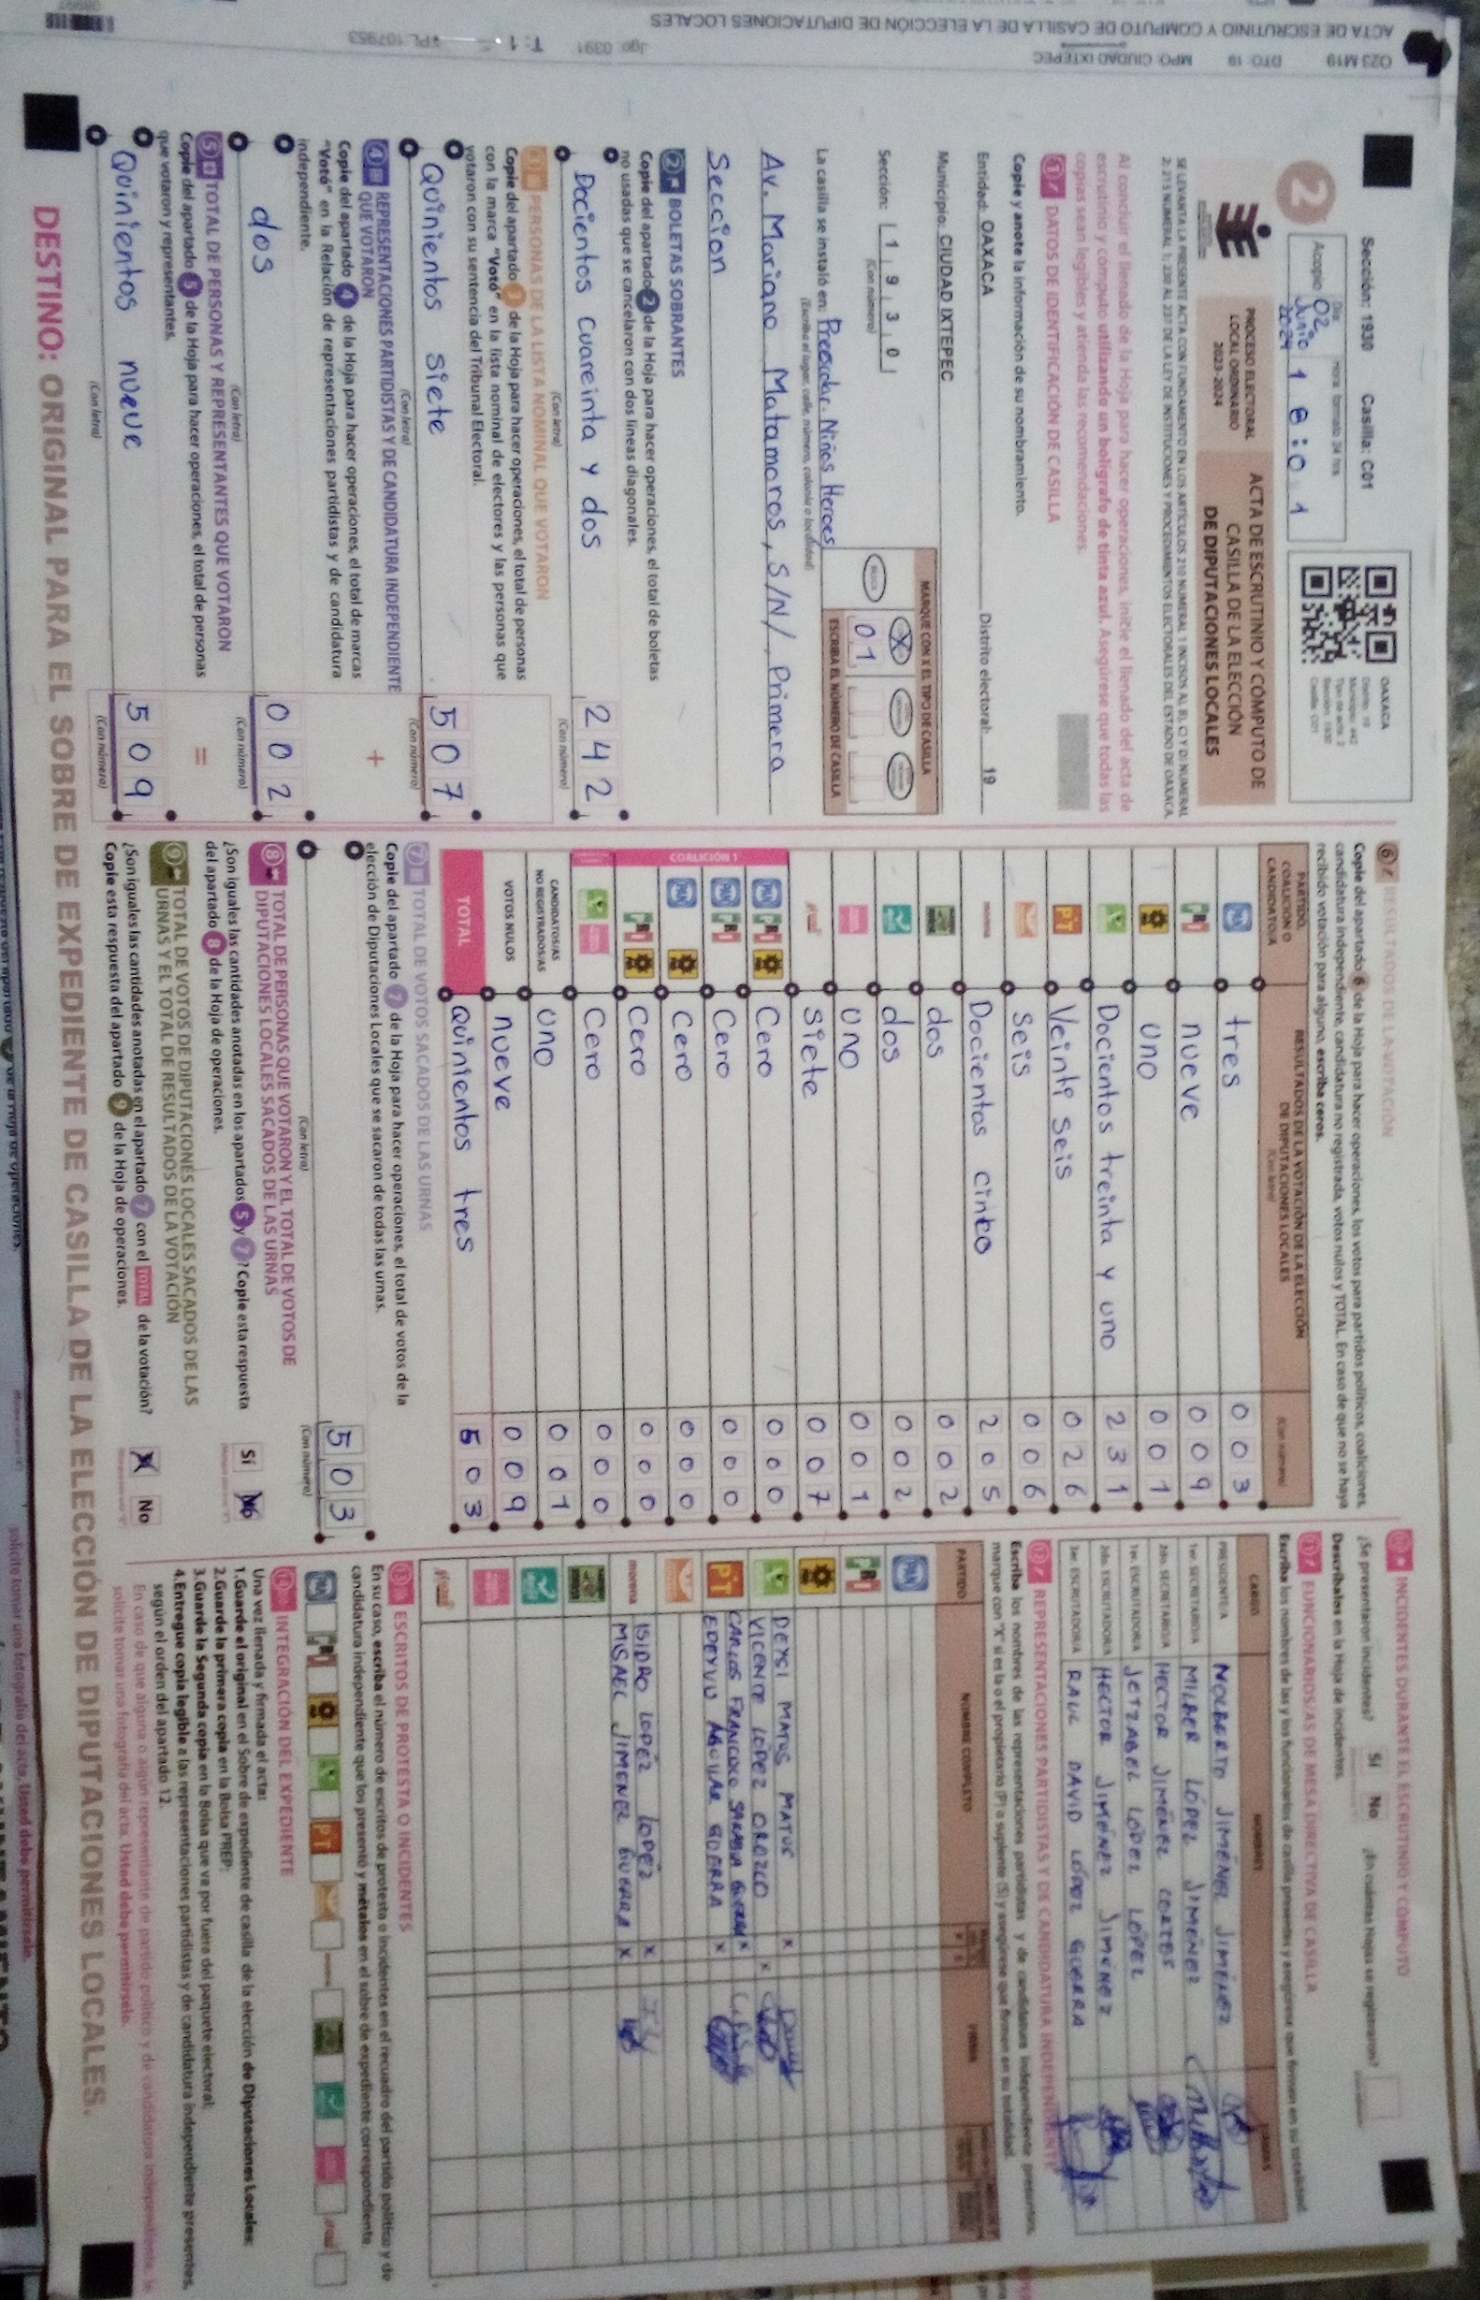 023 M19 DTO: 19 MPO: CIUDAD IXTEPEC Jgo: 0391 T: 1 *PL-107953
ACTA DE ESCRUTINIO Y CÓMPUTO DE CASILLA DE LA ELECCIÓN DE DIPUTACIONES LOCALES
Sección: 1930 Casilla: C01
2
Acopio
Día:
02 Junio 2024
Hora formato 24 hrs
18:01
OAXACA
PROCESO ELECTORAL
LOCAL ORDINARIO
2023-2024
ACTA DE ESCRUTINIO Y CÓMPUTO DE
CASILLA DE LA ELECCIÓN
DE DIPUTACIONES LOCALES
Al concluir el llenado de la Hoja para hacer operaciones, inicie el llenado del acta de
escrutinio y cómputo utilizando un bolígrafo de tinta azul. Asegúrese que todas las
copias sean legibles y atienda las recomendaciones.
1 DATOS DE IDENTIFICACIÓN DE CASILLA
Copie y anote la información de su nombramiento.
Entidad: OAXACA Distrito electoral: 19
Municipio: CIUDAD IXTEPEC
Sección: 1 9 3 0
(Con número)
MARQUE CON X EL TIPO DE CASILLA
X
ESCRIBA EL NÚMERO DE CASILLA
01
La casilla se instaló en: Preescolar. Niños Heroes
(Escriba el lugar, calle, número, colonia o localidad)
Av. Mariano Matamoros, S/N/, Primera
Sección
2 BOLETAS SOBRANTES
Copie del apartado 2 de la Hoja para hacer operaciones, el total de boletas
no usadas que se cancelaron con dos líneas diagonales.
Docientos Cuareinta y dos 242
(Con letra) (Con número)
3 PERSONAS DE LA LISTA NOMINAL QUE VOTARON
Copie del apartado 3 de la Hoja para hacer operaciones, el total de personas
con la marca "Votó" en la lista nominal de electores y las personas que
votaron con su sentencia del Tribunal Electoral.
Quinientos siete 507
(Con letra) (Con número)
4 REPRESENTACIONES PARTIDISTAS Y DE CANDIDATURA INDEPENDIENTE
QUE VOTARON
+
Copie del apartado 4 de la Hoja para hacer operaciones, el total de marcas
"Votó" en la Relación de representaciones partidistas y de candidatura
independiente.
dos 002
(Con letra) (Con número)
5 TOTAL DE PERSONAS Y REPRESENTANTES QUE VOTARON
=
Copie del apartado 5 de la Hoja para hacer operaciones, el total de personas
que votaron y representantes.
Quinientos nueve 509
(Con letra) (Con número)
6 RESULTADOS DE LA VOTACIÓN
Copie del apartado 6 de la Hoja para hacer operaciones, los votos para partidos políticos, coaliciones,
candidatura independiente, candidatura no registrada, votos nulos y TOTAL. En caso de que no se haya
recibido votación para alguno, escriba ceros.
PARTIDO, COALICIÓN O CANDIDATO/A
RESULTADOS DE LA VOTACIÓN DE LA ELECCIÓN
DE DIPUTACIONES LOCALES
(Con letra) (Con número)
PAN tres 003
PRI nueve 009
uno 001
Docientos treinta y uno 231
PT Veinte seis 026
seis 006
morena Docientos cinco 205
dos 002
dos 002
uno 001
siete 007
COALICIÓN 1
PAN PRI Cero 000
PAN PRI Cero 000
PAN Cero 000
PRI Cero 000
Cero 000
CANDIDATOS/AS
NO REGISTRADOS/AS
uno 001
VOTOS NULOS nueve 009
TOTAL Quinientos tres 503
7 TOTAL DE VOTOS SACADOS DE LAS URNAS
Copie del apartado 7 de la Hoja para hacer operaciones, el total de votos de la
elección de Diputaciones Locales que se sacaron de todas las urnas.
503
(Con letra) (Con número)
8 TOTAL DE PERSONAS QUE VOTARON Y EL TOTAL DE VOTOS DE
DIPUTACIONES LOCALES SACADOS DE LAS URNAS
¿Son iguales las cantidades anotadas en los apartados 5 y 7? Copie esta respuesta
del apartado 8 de la Hoja de operaciones.
Sí No
9 TOTAL DE VOTOS DE DIPUTACIONES LOCALES SACADOS DE LAS
URNAS Y EL TOTAL DE RESULTADOS DE LA VOTACIÓN
¿Son iguales las cantidades anotadas en el apartado 7 con el TOTAL de la votación?
Copie esta respuesta del apartado 9 de la Hoja de operaciones.
X No
10 INCIDENTES DURANTE EL ESCRUTINIO Y CÓMPUTO
¿Se presentaron incidentes? Sí No ¿En cuántas Hojas se registraron?
Descríbalos en la Hoja de incidentes.
11 FUNCIONARIOS/AS DE MESA DIRECTIVA DE CASILLA
Escriba los nombres de las y los funcionarios de casilla presentes y asegúrese que firmen en su totalidad.
CARGO NOMBRES FIRMAS
PRESIDENTE/A NOLBERTO JIMÉNEZ JIMÉNEZ
1er. SECRETARIO/A MILBER LÓPEZ JIMÉNEZ
2do. SECRETARIO/A HECTOR JIMÉNEZ CORTES
1er. ESCRUTADOR/A JETZABEL LOPEZ LOPEZ
2do. ESCRUTADOR/A HECTOR JIMÉNEZ JIMÉNEZ
3er. ESCRUTADOR/A RAUL DAVID LÓPEZ GUERRA
12 REPRESENTACIONES PARTIDISTAS Y DE CANDIDATURA INDEPENDIENTE
Escriba los nombres de las representaciones partidistas y de candidatura independiente presentes,
marque con "X" si es la o el propietario (P) o suplente (S) y asegúrese que firmen en su totalidad.
PARTIDO NOMBRE COMPLETO FIRMA
PAN
PRI
DEYSI MATUS MATUS X
VICENTE LOPEZ OROZCO X
PT CARLOS FRANCISCO SARABIA GUERRA X
EDEYVU AGUILAR GUERRA X
morena ISIDRO LOPEZ LOPEZ X
MISAEL JIMENEZ GUERRA X
13 ESCRITOS DE PROTESTA O INCIDENTES
En su caso, escriba el número de escritos de protesta o incidentes en el recuadro del partido político y de
candidatura independiente que los presentó y métalos en el sobre de expediente correspondiente.
PAN PRI PT
14 INTEGRACIÓN DEL EXPEDIENTE
Una vez llenada y firmada el acta:
1.Guarde el original en el Sobre de expediente de casilla de la elección de Diputaciones Locales;
2.Guarde la primera copia en la Bolsa PREP;
3.Guarde la Segunda copia en la Bolsa que va por fuera del paquete electoral;
4.Entregue copia legible a las representaciones partidistas y de candidatura independiente presentes,
según el orden del apartado 12.
En caso de que alguna o algún representante de partido político y de candidatura independiente, le
solicite tomar una fotografía del acta, Usted debe permitírselo.
DESTINO: ORIGINAL PARA EL SOBRE DE EXPEDIENTE DE CASILLA DE LA ELECCIÓN DE DIPUTACIONES LOCALES.